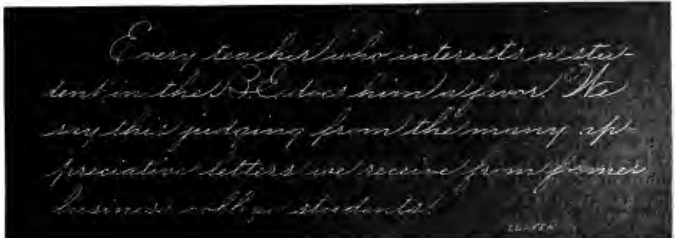 Every teacher who interests a stu-
dent in the B. E. does him a favor. We
say this judging from the many ap-
preciative letters we receive from former
business college students.